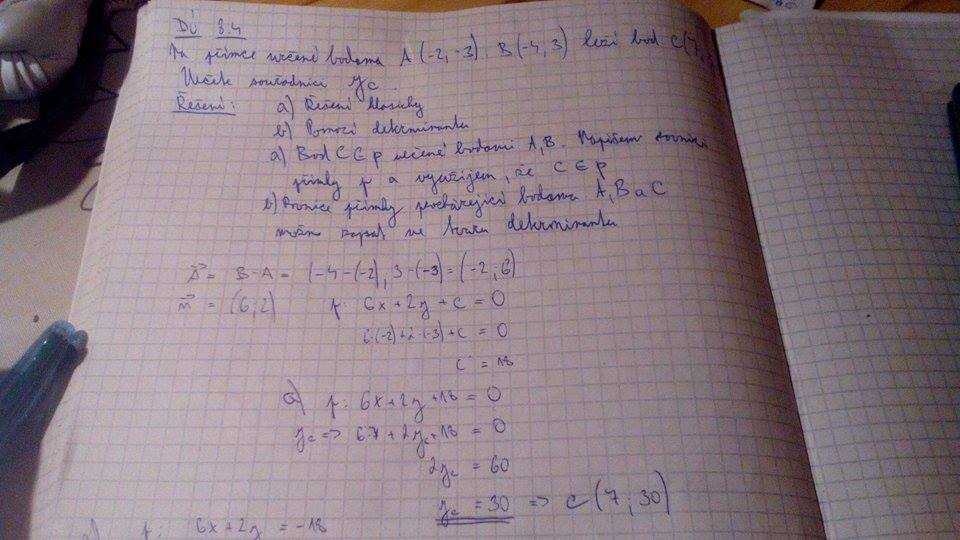 DÚ 8.4
Na přímce určené bodama A(-2,-3), B(-4,3) leží bod C(7
Určete souřadnici yc.
Řešení: a) Řešení klasicky
b) Pomocí determinantu
a) Bod C ∈ p určené bodami A,B. Napíšem rovnici
přímky p a využijem, že C ∈ p
b) Rovnice přímky procházející bodama A, B a C
možno zapsat ve tvaru determinantu
= B-A = (-4-(-2), 3-(-3)) = (-2;6)
= (6;2) p: 6x+2y+c = 0
6·(-2)+2·(-3)+c = 0
c = 18
a) p: 6x+2y+18 = 0
yc => 6·7+2yc+18 = 0
2yc = 60
yc = 30 => C(7;30)
p: 6x+2y = -18